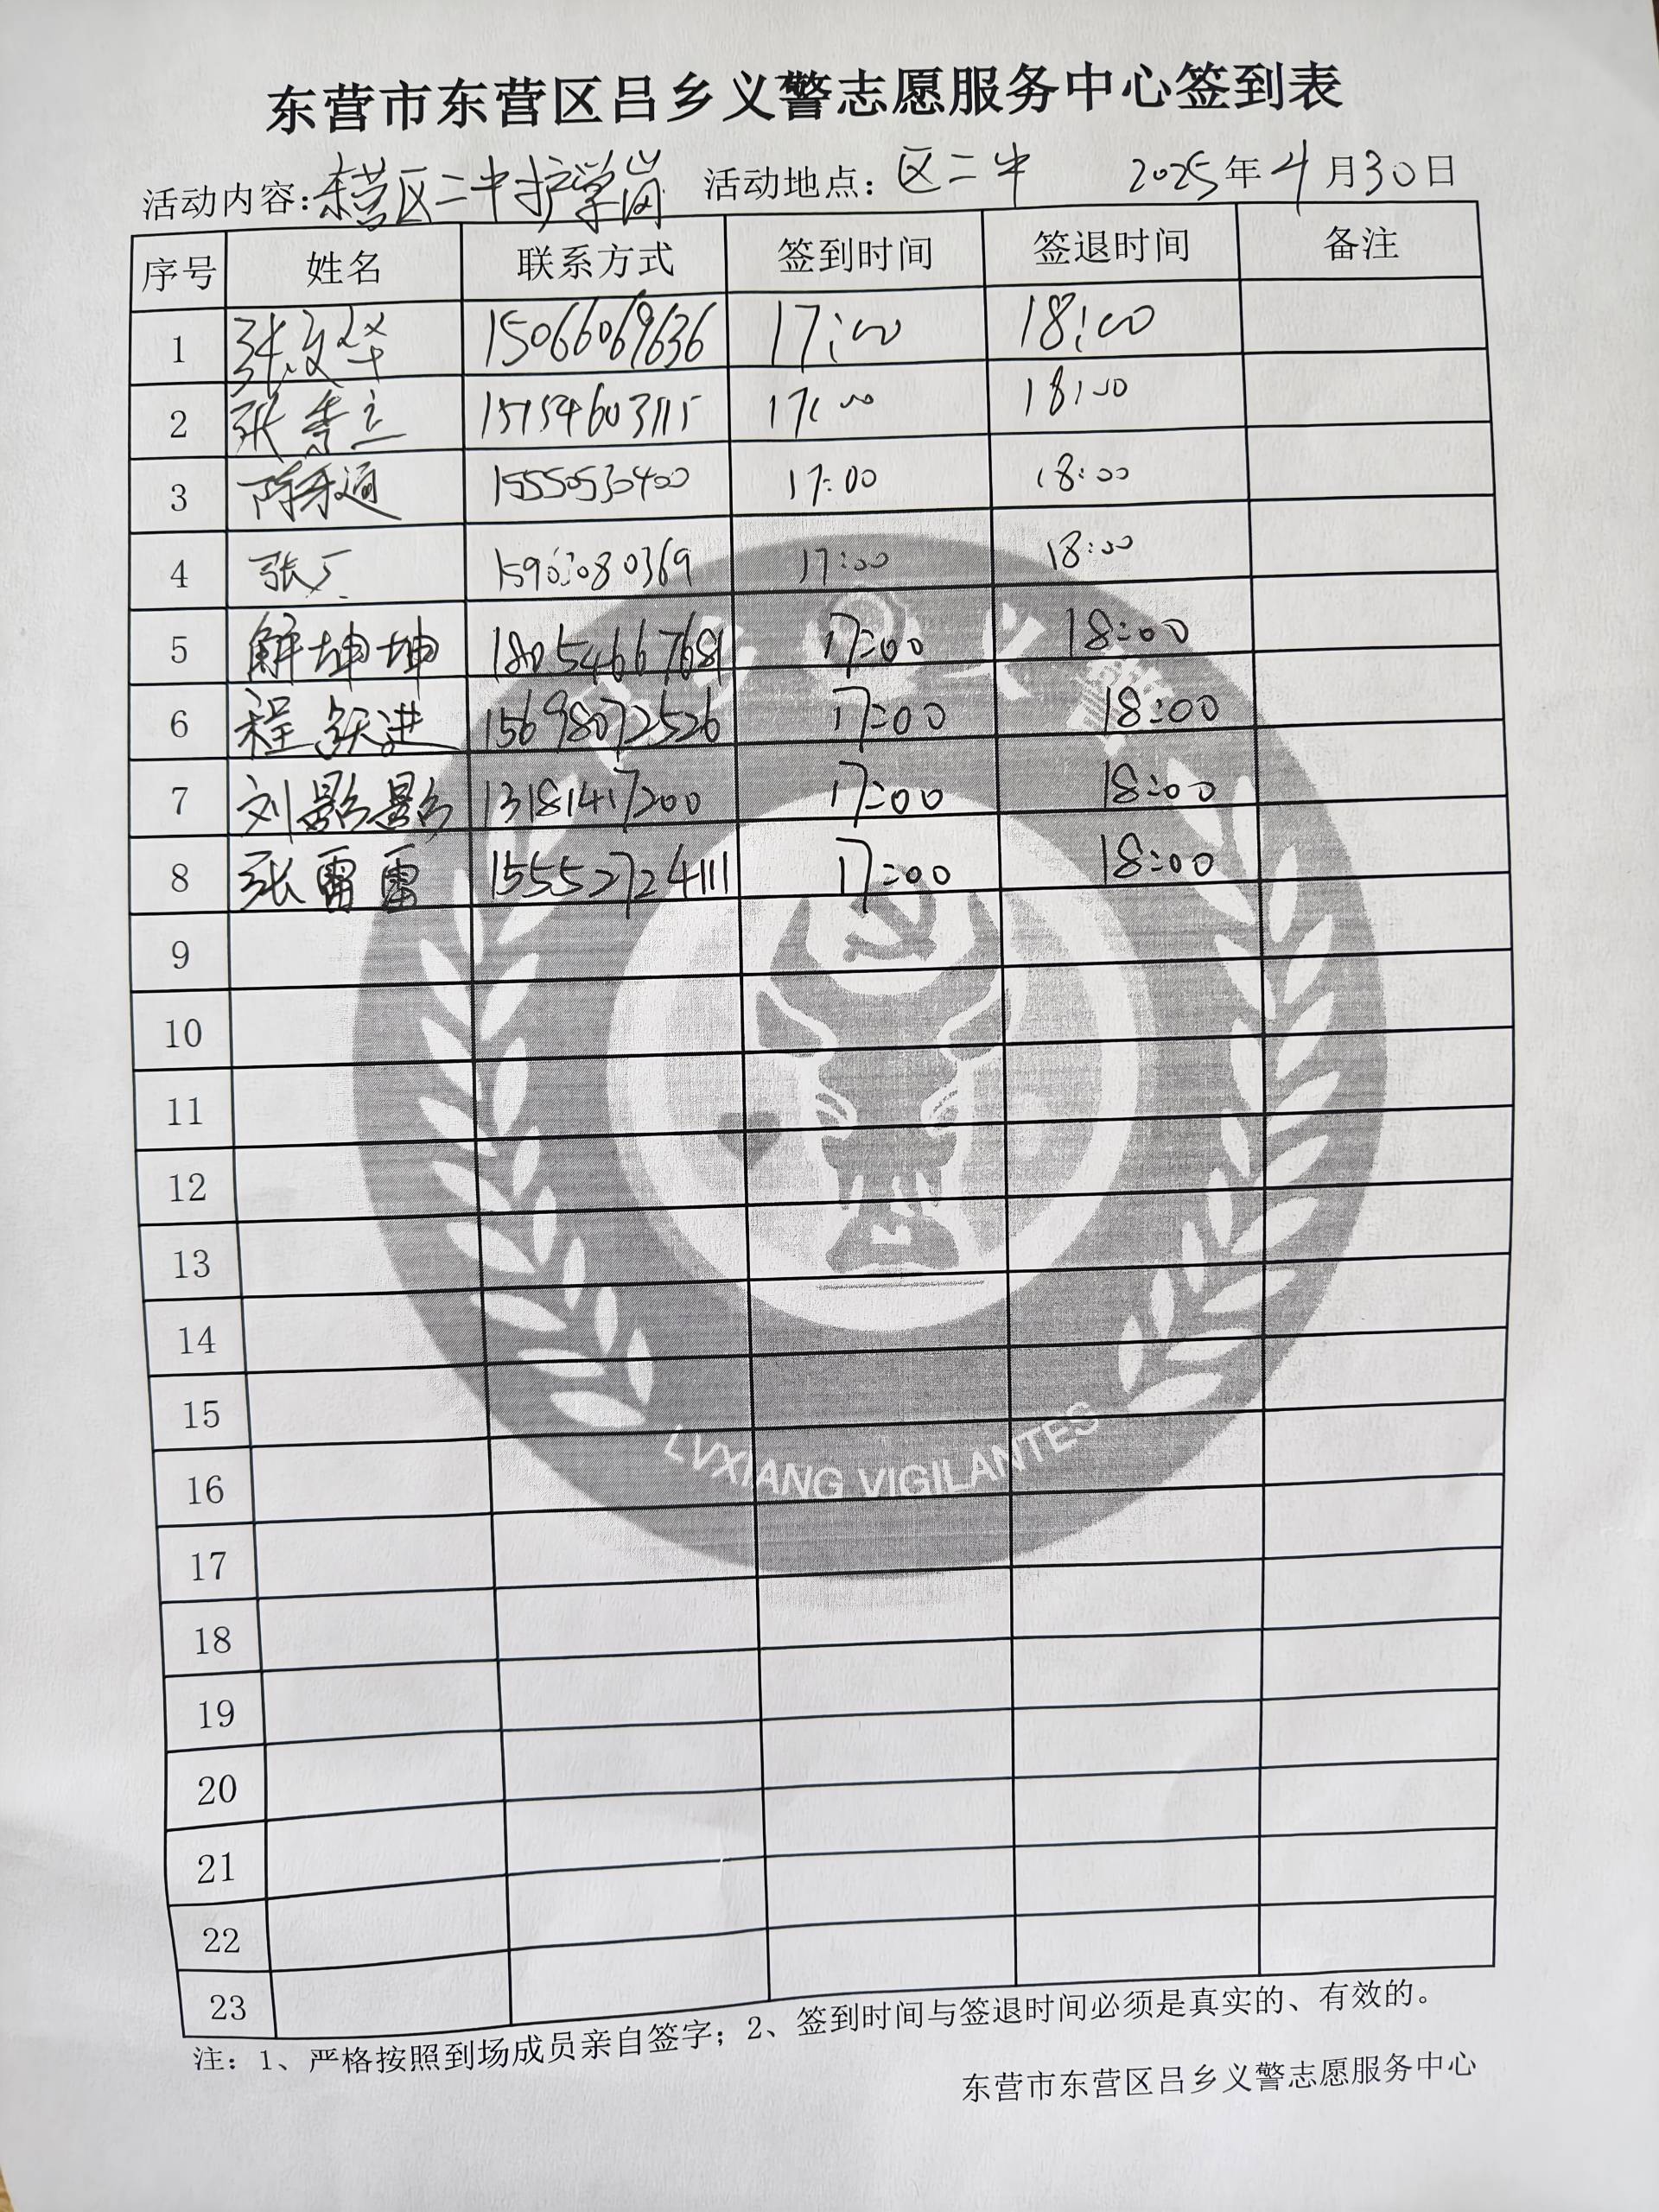 东营市东营区吕乡义警志愿服务中心签到表
活动内容:东营区二中护学岗 活动地点:区二中 2025年4月30日
序号 姓名 联系方式 签到时间 签退时间 备注
1 张文华 15066069636 17:00 18:00
2 张 15154603115 17:00 18:00
3 陈 15550530400 17:00 18:00
4 张 17:00 18:00
5 解坤坤 18054667681 17:00 18:00
6 程跃进 15698072526 17:00 18:00
7 刘影影 13181417200 17:00 18:00
8 张雷雷 15552724111 17:00 18:00
9
10
11
12
13
14
15
16
17
18
19
20
21
22
23
乡 义 警
LVXIANG VIGILANTES
注:1、严格按照到场成员亲自签字;2、签到时间与签退时间必须是真实的、有效的。
东营市东营区吕乡义警志愿服务中心